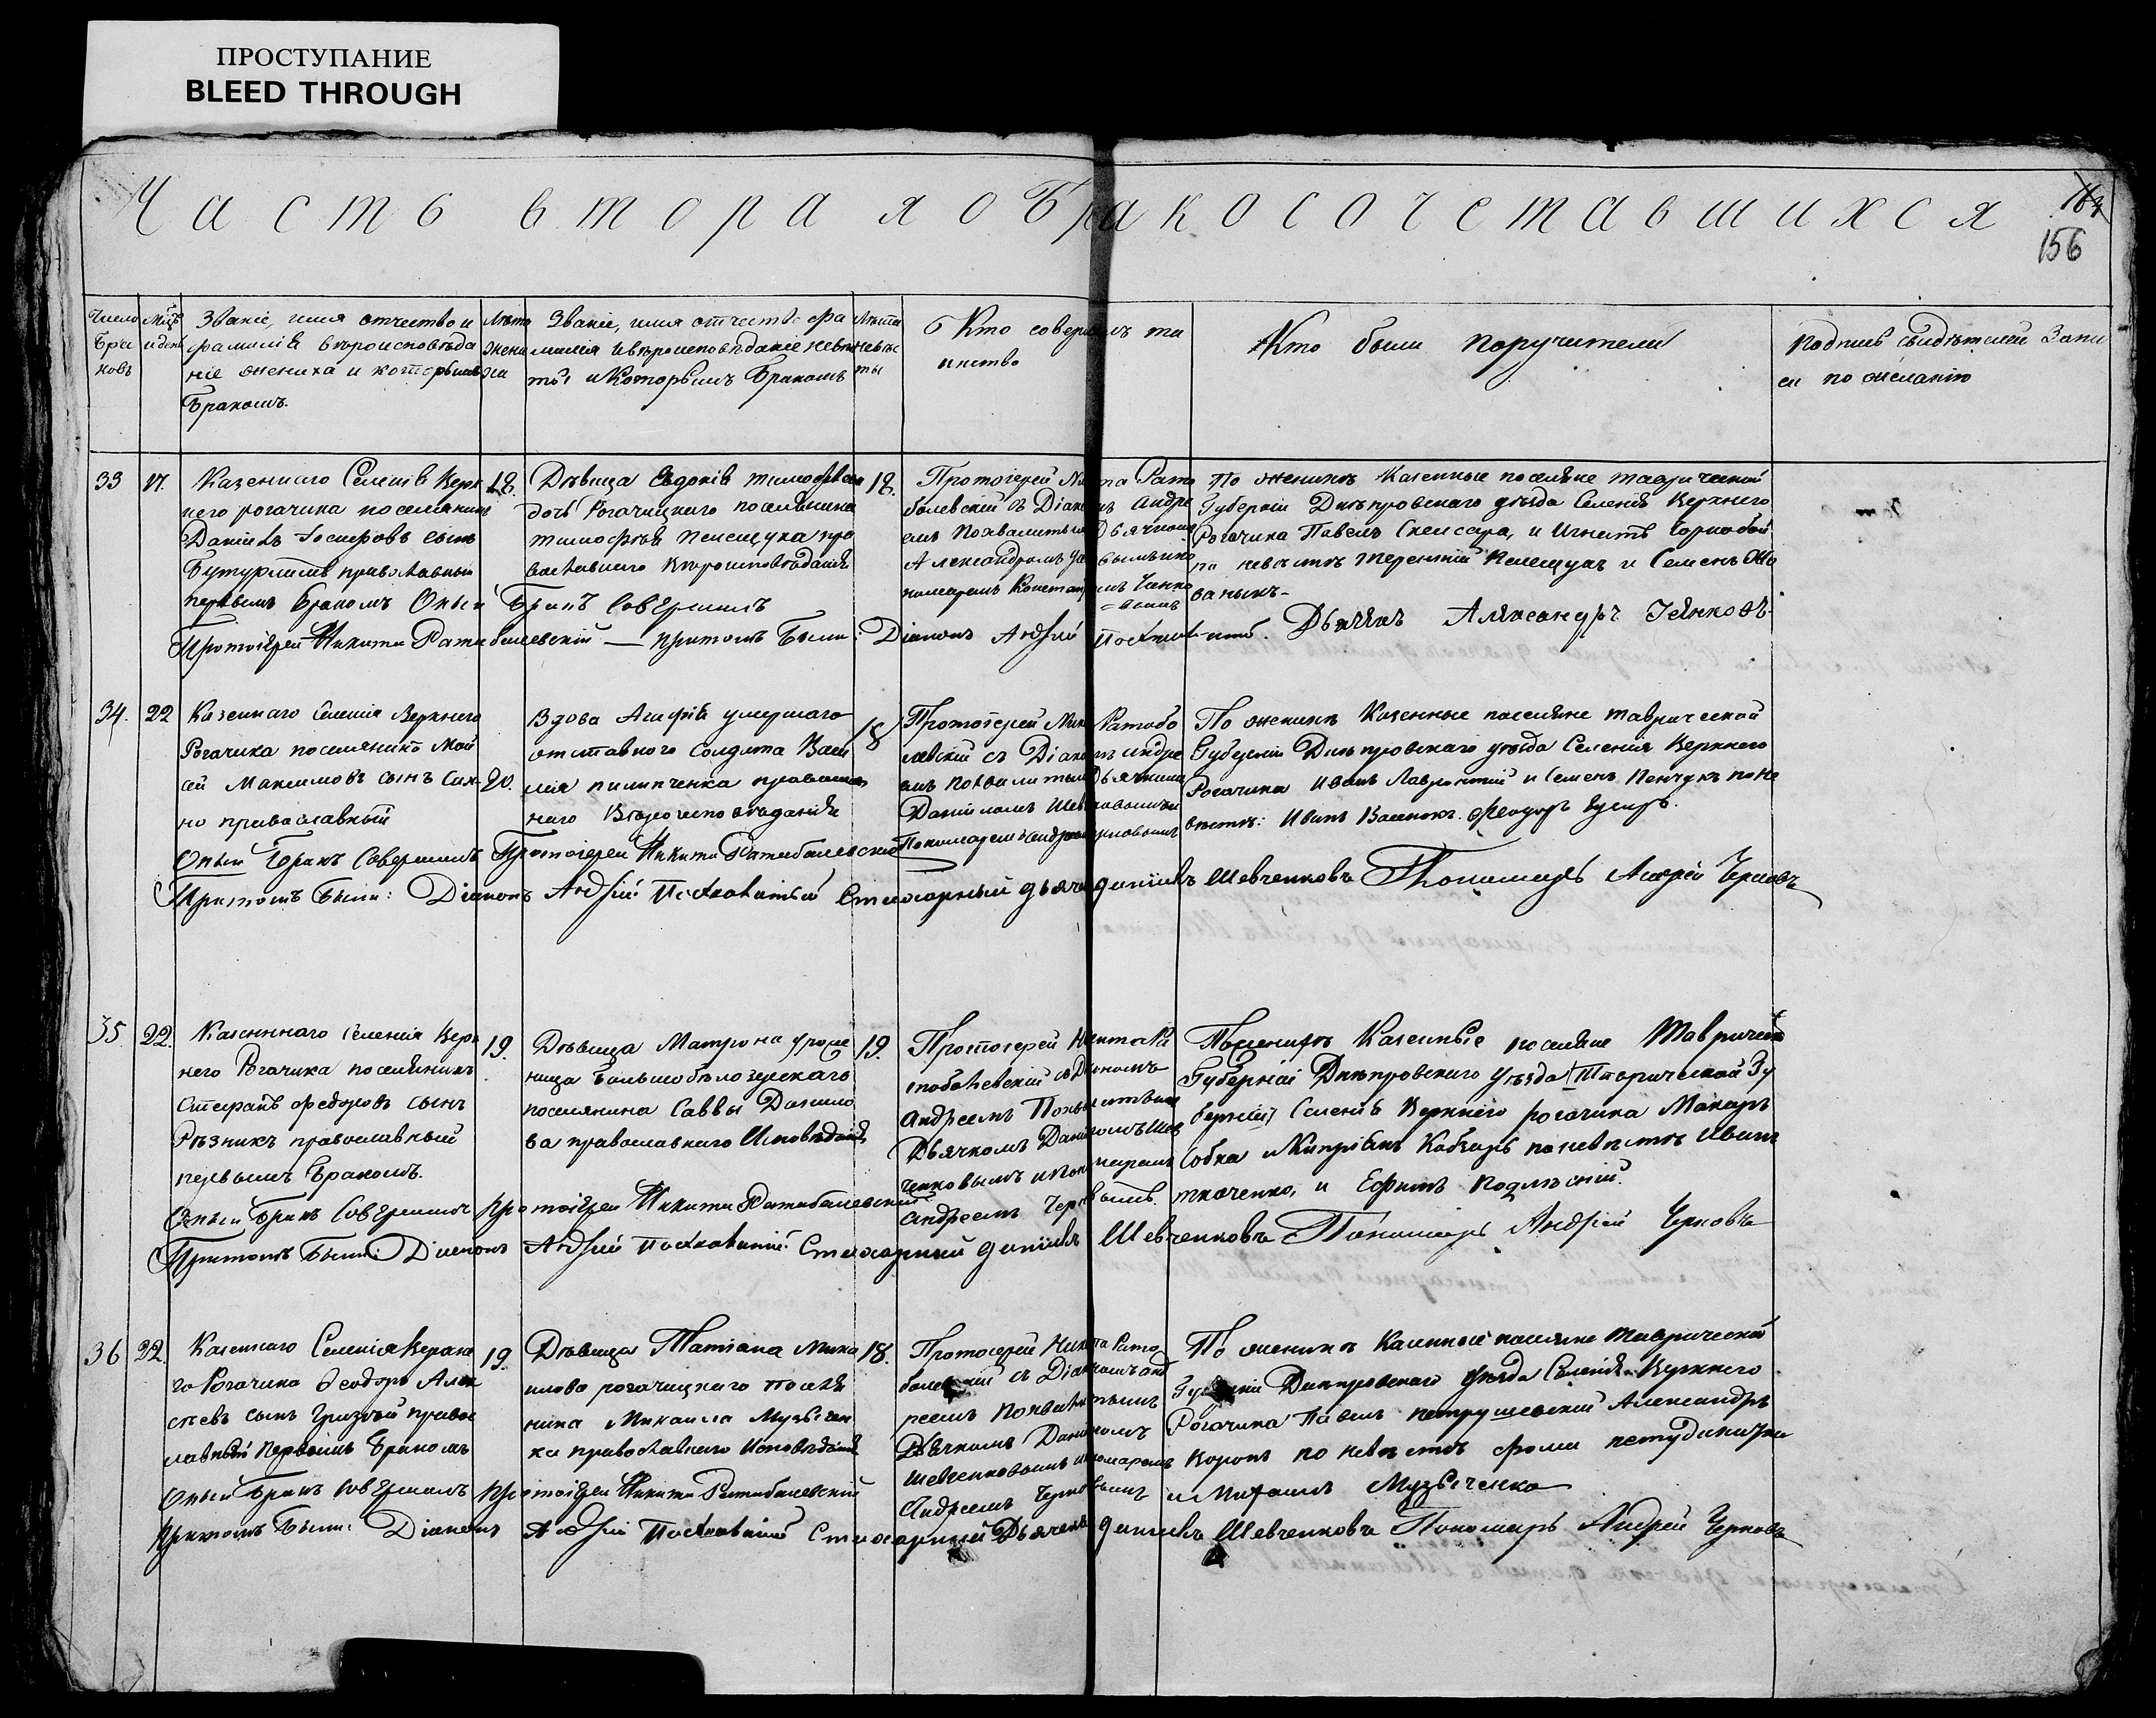 ПРОСТУПАНИЕ
BLEED THROUGH
Часть вторая о Бракосочетавшихся
164
156
Число Бра ковъ
Мцъ и день
Званіе, имя отчество и
фамилія вѣроисповѣда
ніе жениха и которымъ
Бракомъ.
Лѣта жени ха
Званіе, имя отчество фа
милія и вѣроисповѣданіе невѣс
ты и Которымъ Бракомъ
Лѣта невѣс ты
Кто совершилъ та
инство
Кто были поручители
Подпись свидѣтелей Запи
си по желанію
33
17.
Казеннаго Селенія Верх
него рогачика поселянинъ
Даніилъ Іосифовъ сынъ
Бутурлимъ православный
первымъ Бракомъ
18.
Дѣвица Евдокія тимофѣева
дочь Рогачицкого поселянина
тимофѣя Пелещука пра
вославнаго Вѣроисповѣданія
18.
Протоіерей Никита Рато
болевскій съ Діакономъ Андре
емъ Похвалитымъ Дьячкомъ
Александромъ
номаремъ
По женихѣ Казенные поселяне таврической
Губерніи Днѣпровскаго уѣзда Селенія Верхнего
Рогачика Павелъ Слесара, и Игнатъ Чорнобой
по невѣстѣ Терентій Пелещукъ и Семенъ
Оный Бракъ Совершилъ
Протоіерей Никита Ратаболевскій — притомъ Были: Діаконъ Андрѣй Дьячекъ Александръ
34.
22
Казеннаго Селенія Верхнего
Рогачика поселянинъ Мой
сей Максимовъ сынъ Сах
но православный
20.
Вдова Агафія умершаго
отставного Солдата Васи
лія пилипченка православ
наго Вѣроисповѣданія
18
Протоіерей Никита Ратобо
левскій съ Діакономъ Андре
емъ Похвалитымъ Дьячкомъ
Даніиломъ Шевченковымъ и
Пономаремъ Андреемъ Черновымъ
По женихѣ Казенные поселяне таврической
Губерніи Днѣпровскаго уѣзда Селенія Верхнего
Рогачика Иванъ Лаврентій и Семенъ Пенчукъ по не
вѣстѣ: Иванъ Феодоръ
Оный Бракъ Совершилъ Протоіерей Никита Ратаболевскій
Притомъ Были: Діаконъ Андрѣй Стихарный дьячекъ даніилъ Шевченковъ Пономарь Андрей Черновъ
35
22.
Казеннаго Селенія Верх
него Рогачика поселянинъ
Стефанъ Федоровъ сынъ
Рѣзникъ православный
первымъ Бракомъ.
19.
Дѣвица Матрона
ница большобѣлозерскаго
поселянина Саввы Данило
ва православнаго Исповѣданія
19.
Протоіерей Никита Ра
тоболевскій съ Діакономъ
Андреемъ Похвалитымъ
Дьячкомъ Даніиломъ Шев
ченковымъ и Пономаремъ
Андреемъ Черновымъ.
По женихѣ Казенные поселяне Таврической
Губерніи Днѣпровскаго Уѣзда (Таврической Гу
берніи) Селенія Верхнего рогачика Макаръ
Собка и Кипріянъ Кобзарь по невѣстѣ Иванъ
ткаченко, и Ефимъ Подлѣсній.
Оный Бракъ Совершилъ протоіерей Никита Ратаболевскій
Притомъ Были: Діаконъ Андрѣй Стихарный даніилъ Шевченковъ Пономарь Андрѣй Черновъ
36
22.
Казеннаго Селенія Верхне
го Рогачика Феодоръ Алек
сѣевъ сынъ правос
лавный Первымъ Бракомъ
19.
Дѣвица Татіана Михаи
лова рогачицкаго поселя
нина Михаила Музычен
ка православнаго Исповѣданія
18.
Протоіерей Никита Рато
болевскій съ Діакономъ Анд
реемъ Похвалитымъ
Дьячкомъ Даніиломъ
Шевченковымъ и пономаремъ
Андреемъ Черновымъ
По женихѣ Казенные поселяне Таврической
Губерніи Днѣпровскаго Уѣзда Селенія Верхнего
Рогачика Павелъ петрушевскій Александръ
Коропъ по невѣстѣ фома
и Михаилъ Музыченко
Оный Бракъ Совершилъ протоіерей Никита Ратаболевскій
Притомъ Были: Діаконъ Андрѣй Стихарный Дьячекъ даніилъ Шевченковъ Пономарь Андрей Черновъ